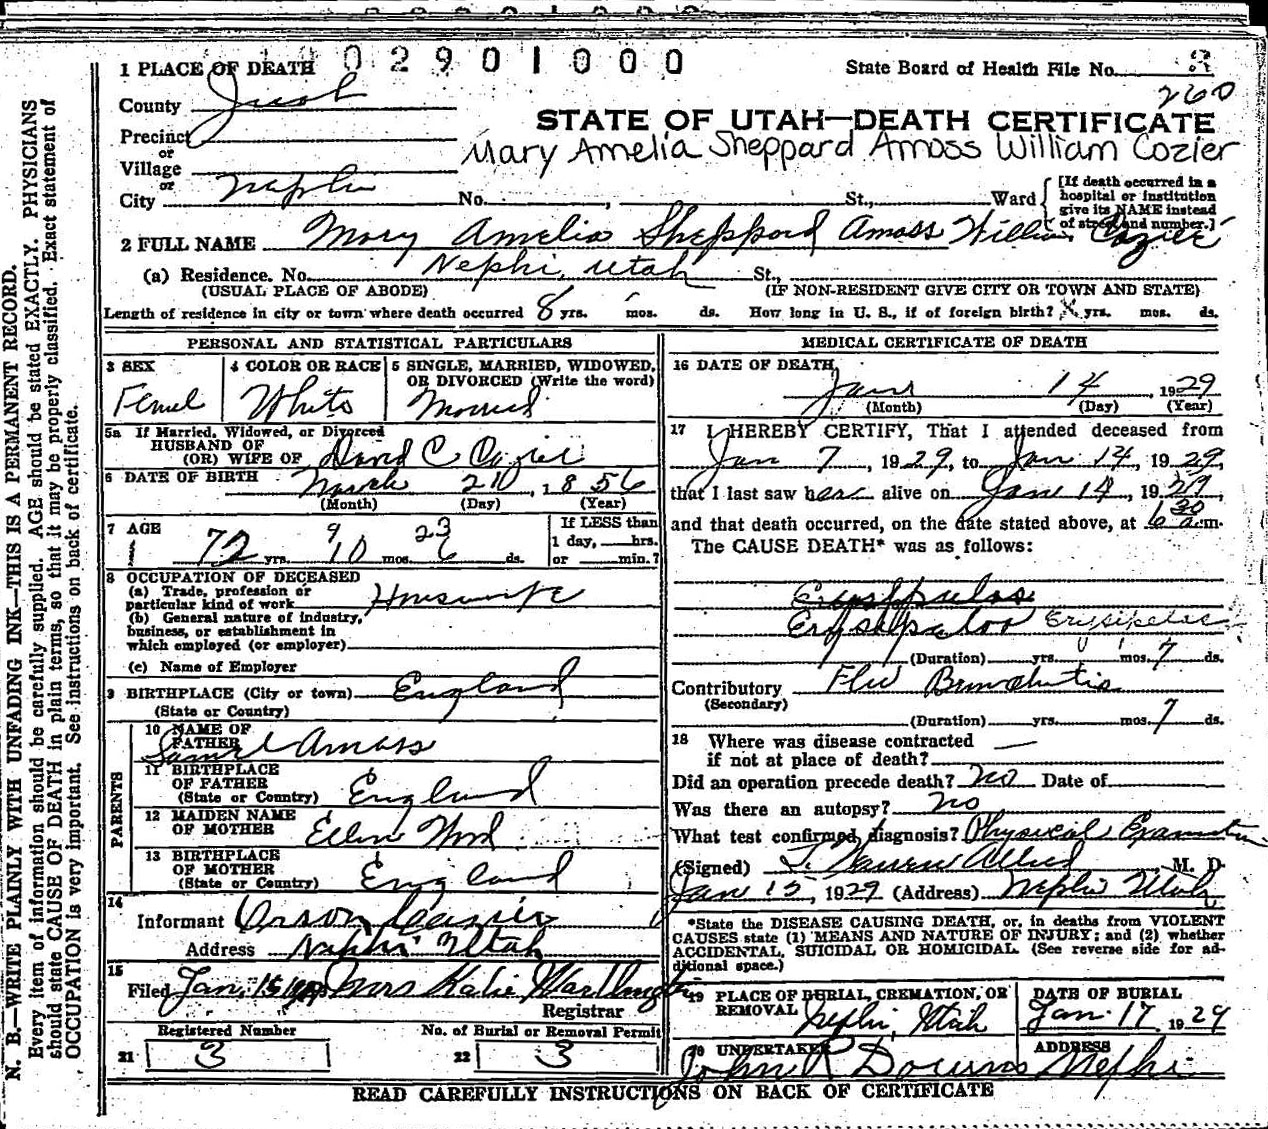 1 PLACE OF DEATH 1 0 2 9 0 1 0 0 0 State Board of Health File No. 3
260
County Juab
STATE OF UTAH—DEATH CERTIFICATE
Precinct
or
Mary Amelia Sheppard Amoss William Cozier
Village
or
City Nephi No. , St., Ward [If death occurred in a hospital or institution give its NAME instead of street and number.]
2 FULL NAME Mary Amelia Sheppard Amoss William Cozier
(a) Residence. No. Nephi, Utah St.,
(USUAL PLACE OF ABODE) (IF NON-RESIDENT GIVE CITY OR TOWN AND STATE)
Length of residence in city or town where death occurred 8 yrs. mos. ds. How long in U. S., if of foreign birth? X yrs. mos. ds.
PERSONAL AND STATISTICAL PARTICULARS
3 SEX 4 COLOR OR RACE 5 SINGLE, MARRIED, WIDOWED,
OR DIVORCED (Write the word)
Femel White Married
5a If Married, Widowed, or Divorced
HUSBAND OF
(OR) WIFE OF David C Cozier
6 DATE OF BIRTH March 20, 1856
(Month) (Day) (Year)
7 AGE 9 23 If LESS than
72 yrs. 10 mos. 6 ds. 1 day, hrs.
or min.?
8 OCCUPATION OF DECEASED
(a) Trade, profession or
particular kind of work Housewife
(b) General nature of industry,
business, or establishment in
which employed (or employer)
(c) Name of Employer
9 BIRTHPLACE (City or town) England
(State or Country)
PARENTS
10 NAME OF
FATHER Samuel Amoss
11 BIRTHPLACE
OF FATHER
(State or Country) England
12 MAIDEN NAME
OF MOTHER Ellen Wood
13 BIRTHPLACE
OF MOTHER
(State or Country) England
14
Informant Orson Cazier
Address Nephi Utah
15
Filed Jan. 15 1929 Mrs Katie Worthington
Registrar
Registered Number No. of Burial or Removal Permit
21 3 22 3
MEDICAL CERTIFICATE OF DEATH
16 DATE OF DEATH
Jany 14, 1929
(Month) (Day) (Year)
17 I HEREBY CERTIFY, That I attended deceased from
Jan 7, 1929, to Jan 14, 1929,
that I last saw her alive on Jan 14, 1929,
and that death occurred, on the date stated above, at 6 30 a.m.
The CAUSE DEATH* was as follows:
Erysipelas
Erysipelas Erysipelas
(Duration) yrs. mos. 7 ds.
Contributory Flu Bronchitis
(Secondary)
(Duration) yrs. mos. 7 ds.
18 Where was disease contracted
if not at place of death? —
Did an operation precede death? no Date of
Was there an autopsy? no
What test confirmed diagnosis? Physical Examination
(Signed) M. D.
Jan 15, 1929 (Address) Nephi Utah
*State the DISEASE CAUSING DEATH, or, in deaths from VIOLENT
CAUSES state (1) MEANS AND NATURE OF INJURY; and (2) whether
ACCIDENTAL, SUICIDAL OR HOMICIDAL. (See reverse side for ad-
ditional space.)
19 PLACE OF BURIAL, CREMATION, OR
REMOVAL Nephi, Utah
DATE OF BURIAL
Jan. 17, 1929
20 UNDERTAKER ADDRESS
John R Downs Nephi
READ CAREFULLY INSTRUCTIONS ON BACK OF CERTIFICATE
N. B.—WRITE PLAINLY WITH UNFADING INK—THIS IS A PERMANENT RECORD.
Every item of information should be carefully supplied. AGE should be stated EXACTLY. PHYSICIANS
should state CAUSE OF DEATH in plain terms, so that it may be properly classified. Exact statement of
OCCUPATION is very important. See instructions on back of certificate.